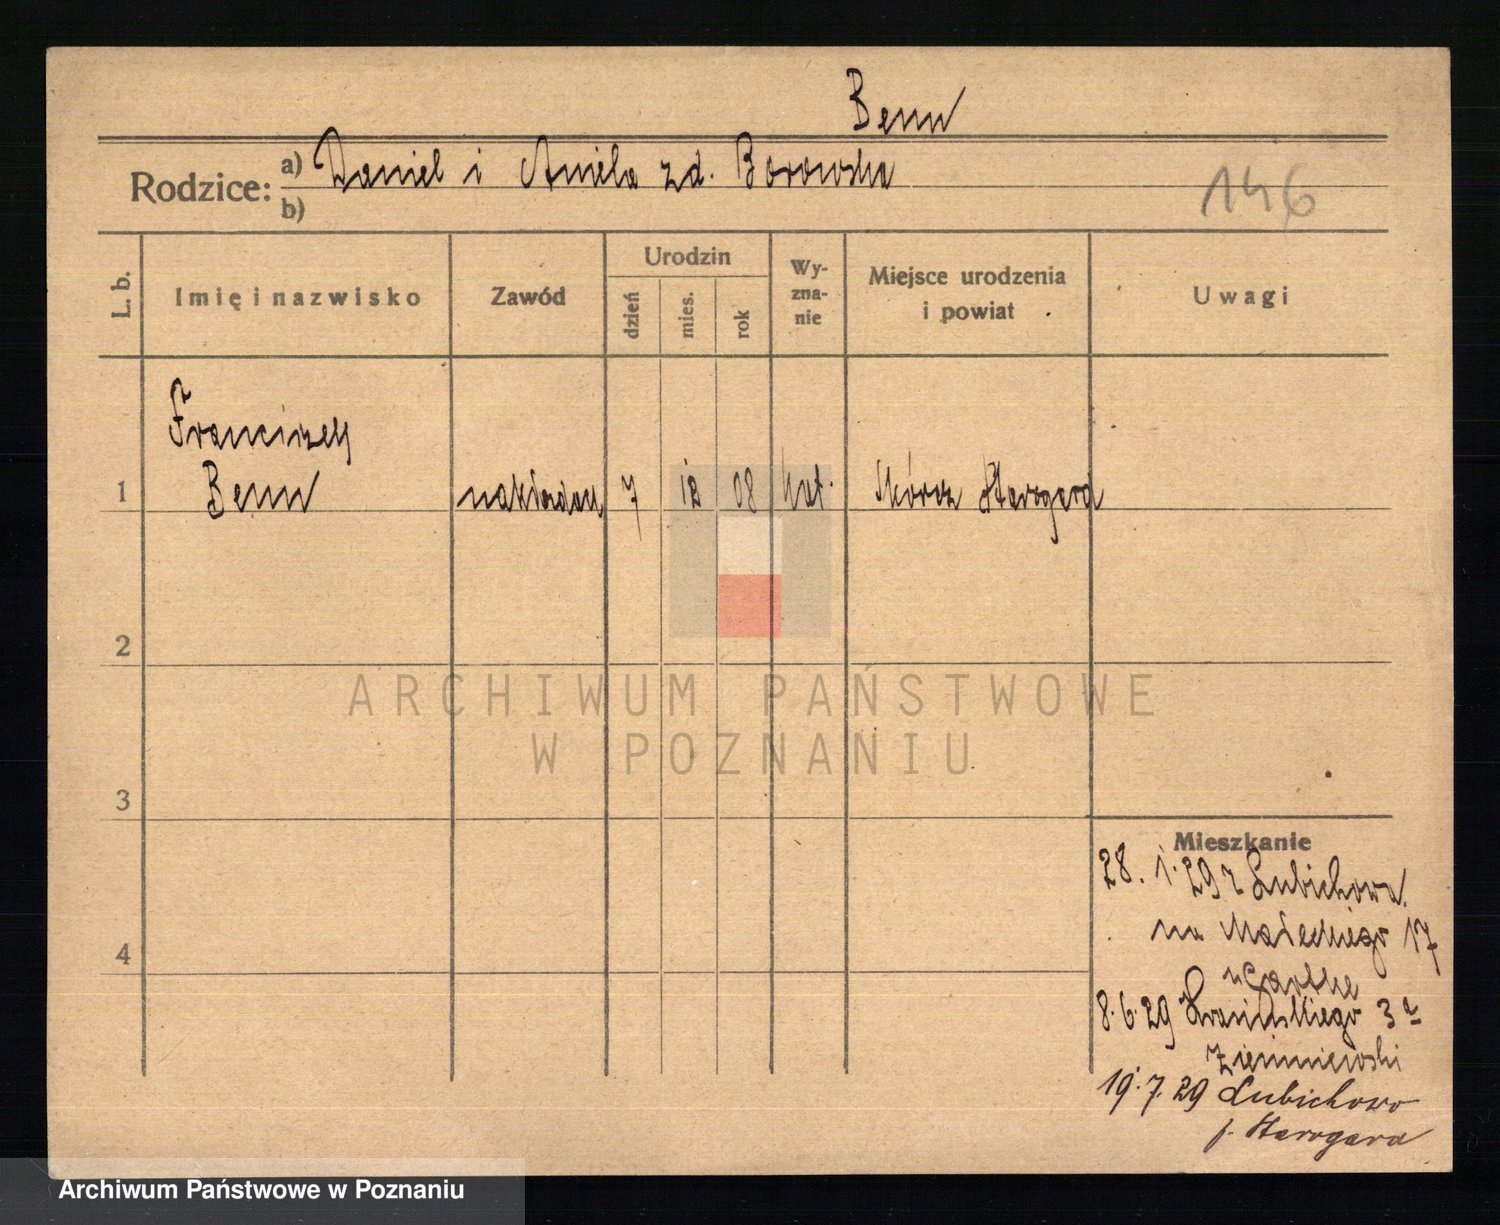 Benn
Rodzice: a) Daniel i Aniela zd. Borowska
b)
146
L. b.
Imię i nazwisko
Zawód
Urodzin
dzień
mies.
rok
Wy-
zna-
nie
Miejsce urodzenia
i powiat
Uwagi
Franciszek
1 Benn 7 12 08 kat. Skórcz Starogard
2
3
4
ARCHIWUM PAŃSTWOWE
W POZNANIU
Mieszkanie
28. 1. 29 z Lubichowa
na Małeckiego 17
8. 6. 29 3
19. 7. 29 Lubichowo
p. Starogard
Archiwum Państwowe w Poznaniu